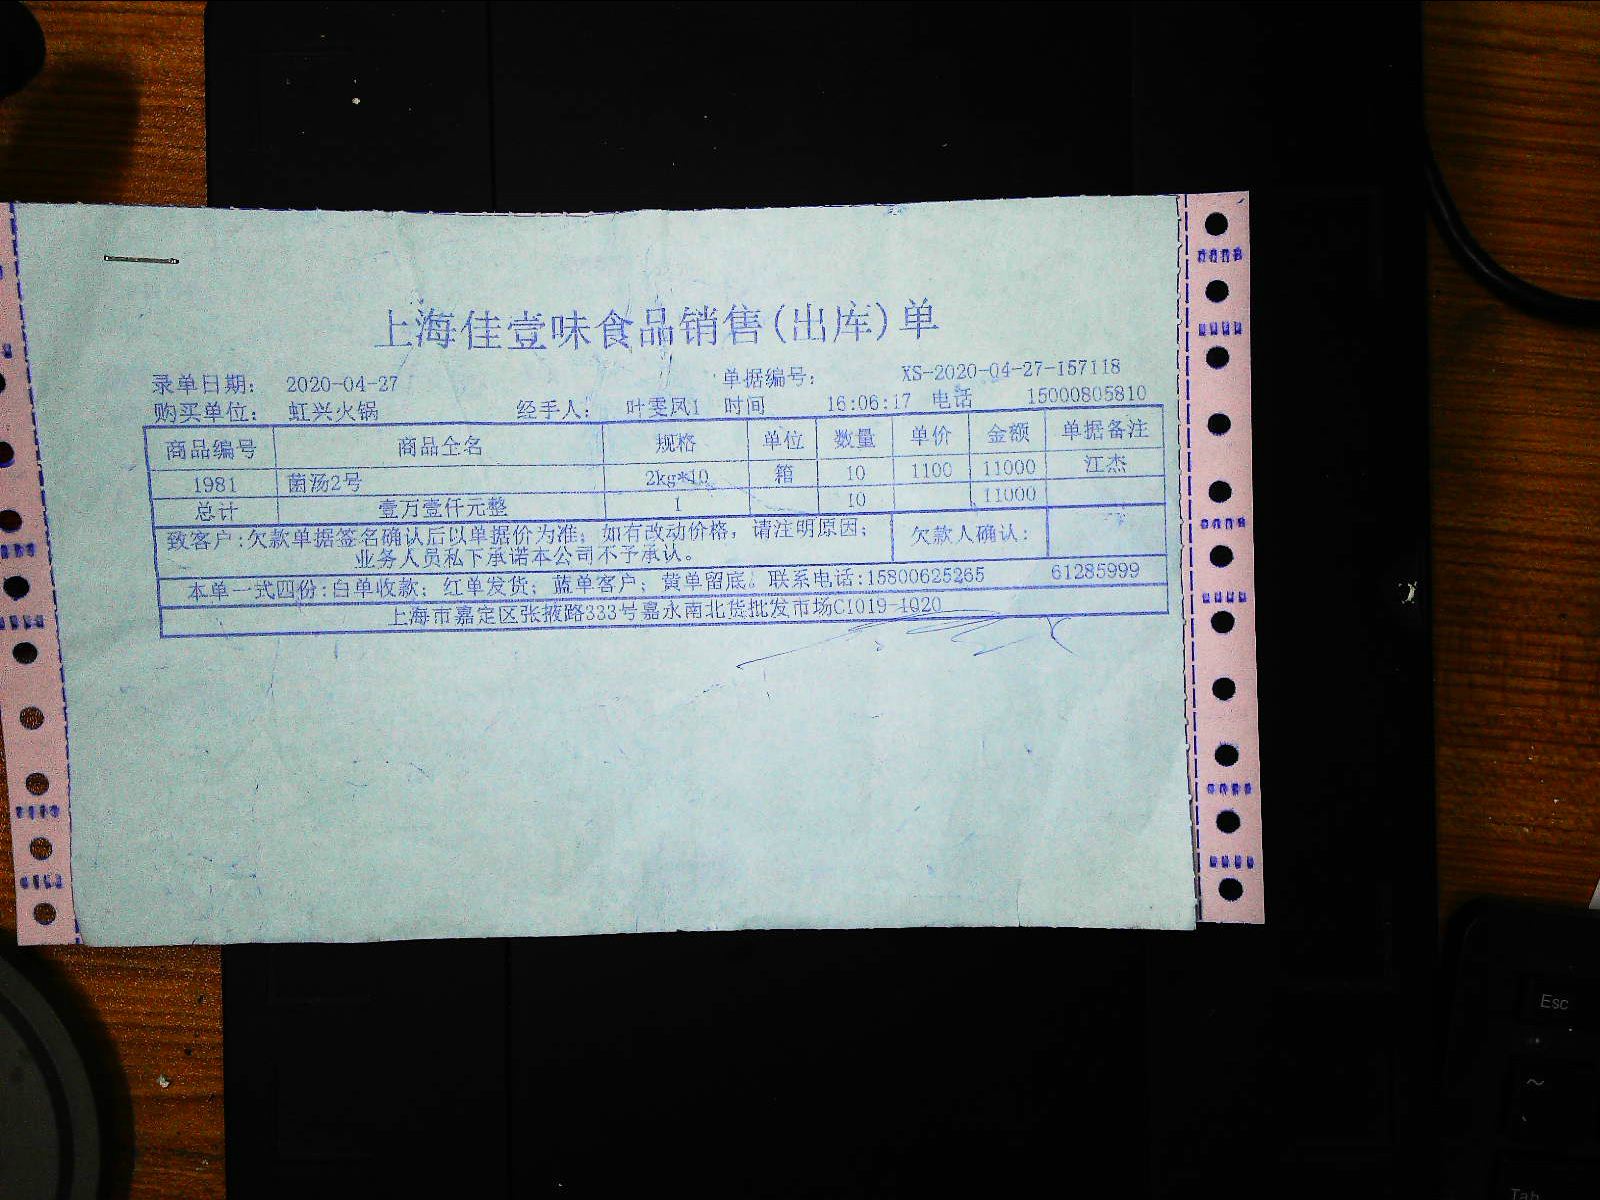 上海佳壹味食品销售(出库)单
录单日期: 2020-04-27 单据编号: XS-2020-04-27-157118
购买单位: 虹兴火锅 经手人: 叶雯凤1 时间 16:06:17 电话 15000805810
商品编号 商品全名 规格 单位 数量 单价 金额 单据备注
1981 菌汤2号 2kg*10 箱 10 1100 11000 江杰
总计 壹万壹仟元整 1 10 11000
致客户:欠款单据签名确认后以单据价为准;如有改动价格,请注明原因;
业务人员私下承诺本公司不予承认。
欠款人确认:
本单一式四份:白单收款;红单发货;蓝单客户;黄单留底。联系电话:15800625265 61285999
上海市嘉定区张掖路333号嘉永南北货批发市场C1019-1020
Esc
~
Tab